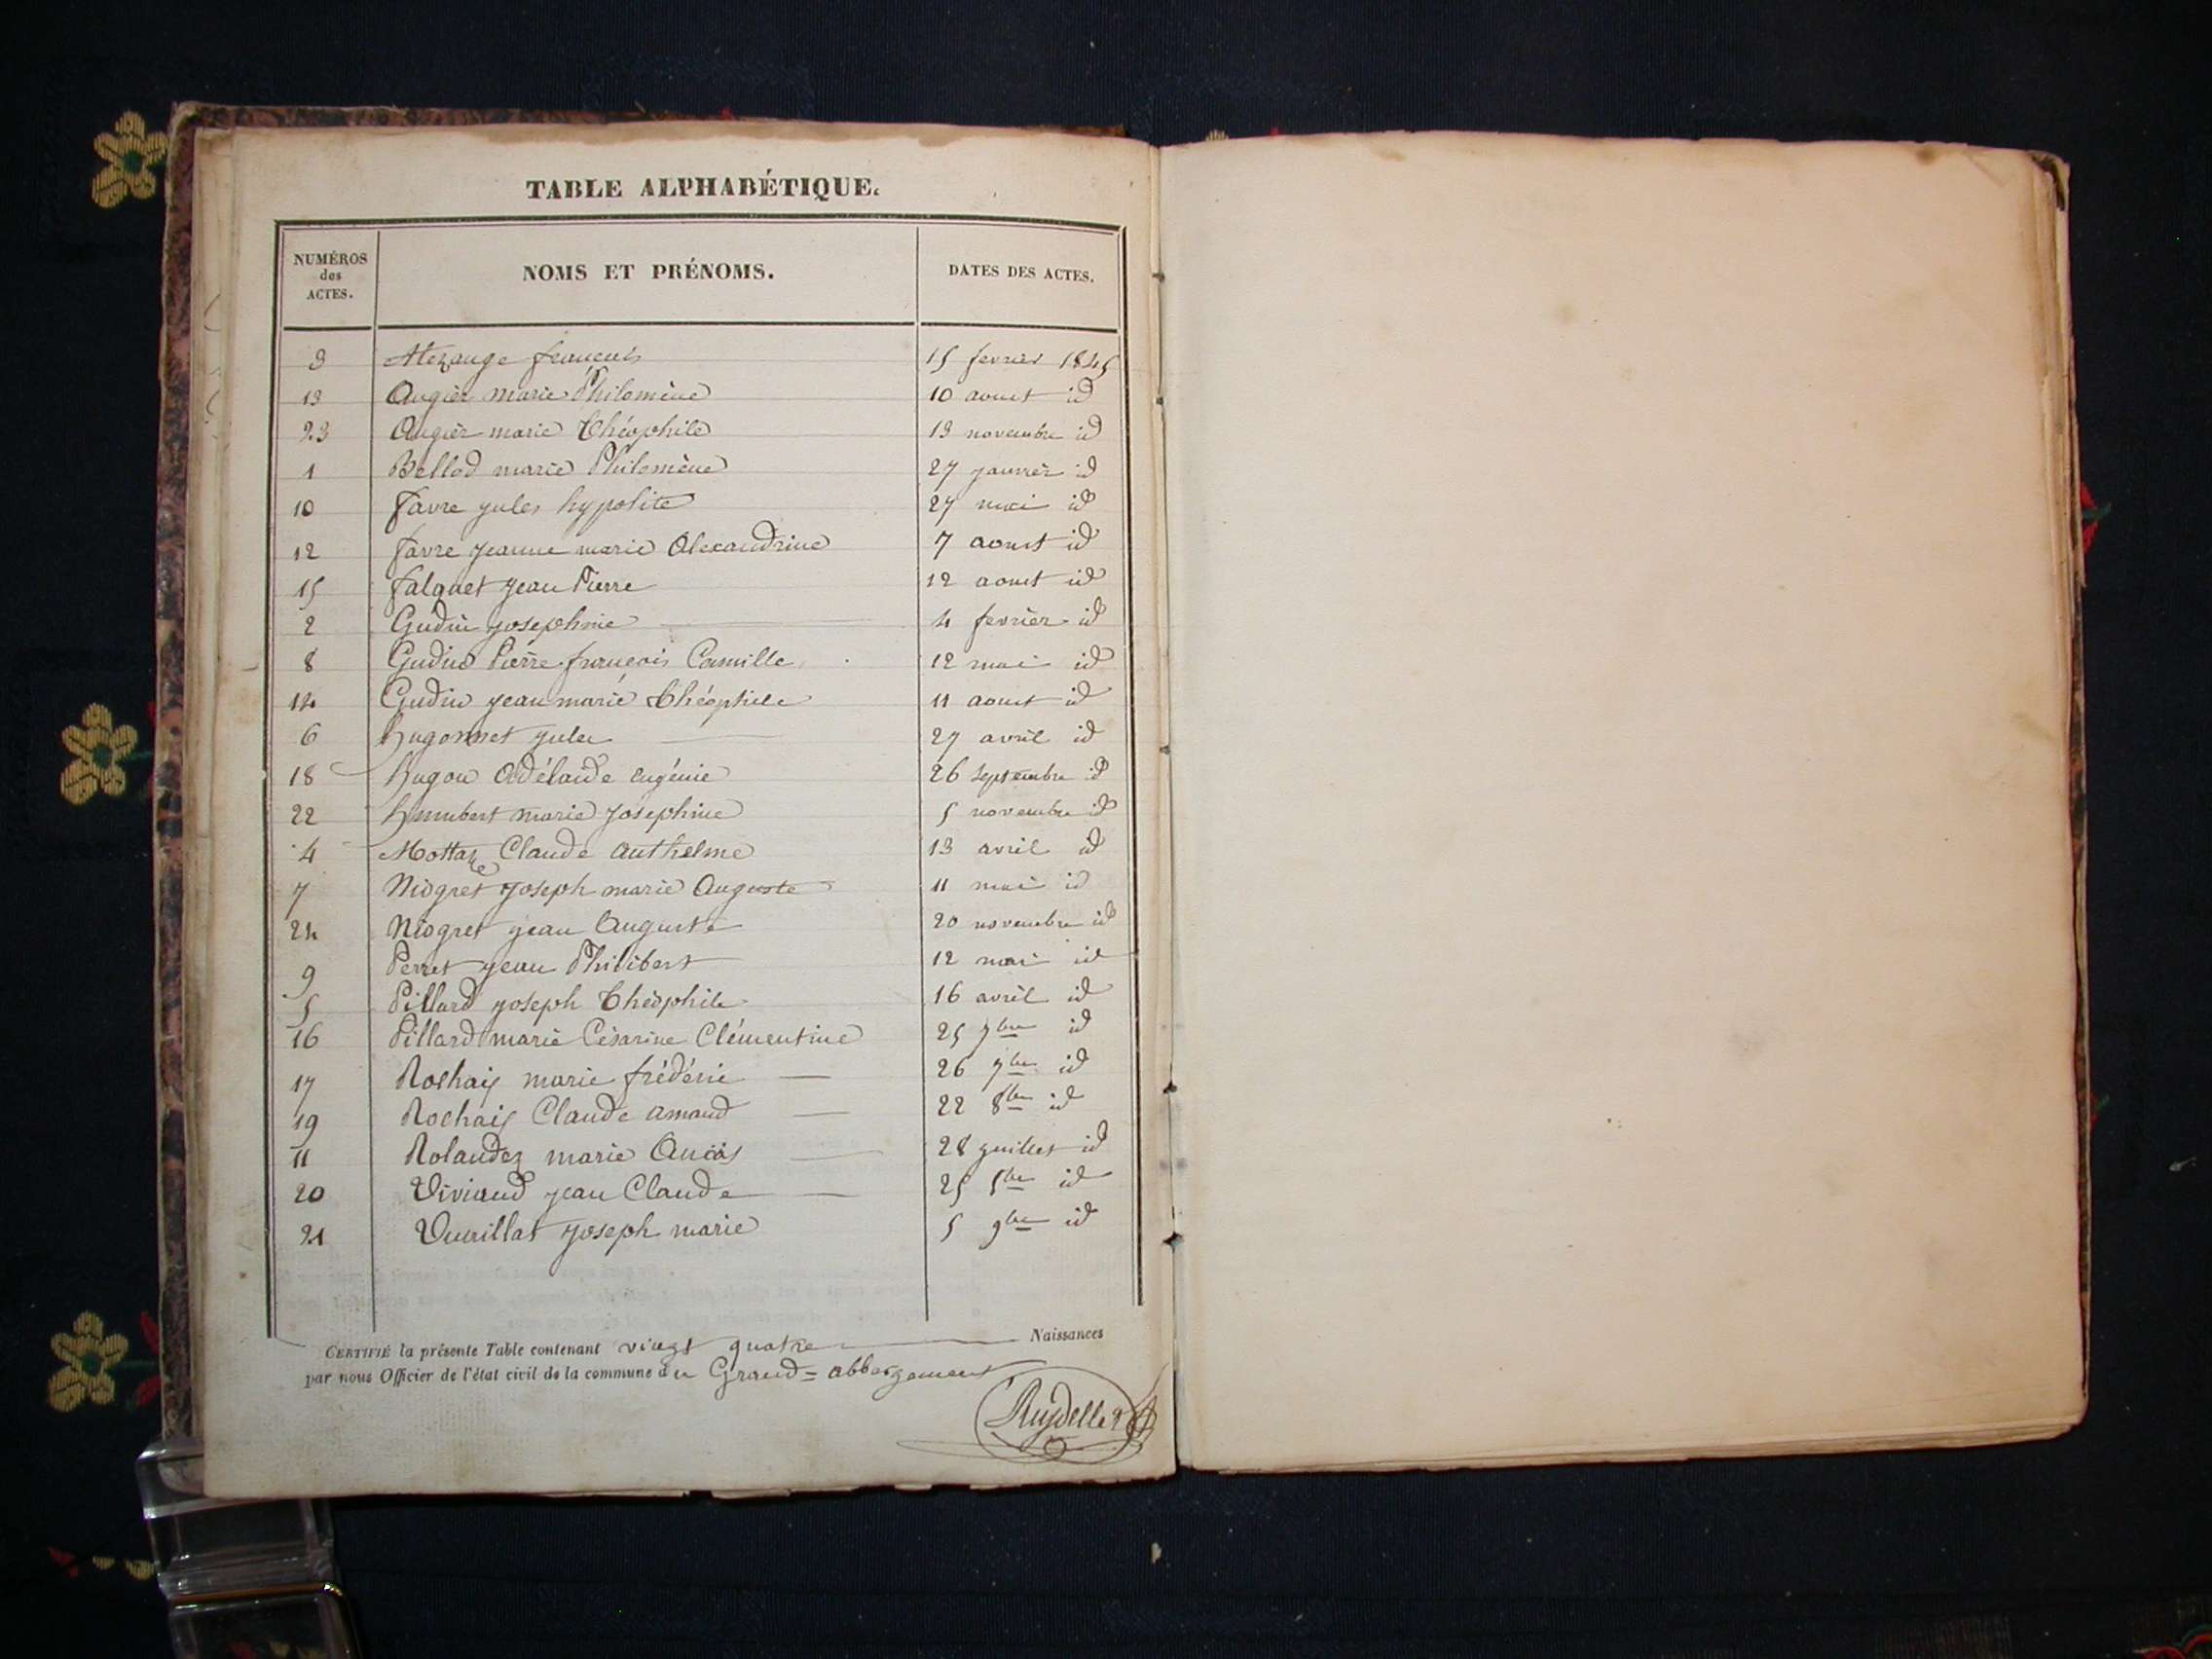 TABLE ALPHABÉTIQUE.
NUMÉROS des ACTES. NOMS ET PRÉNOMS. DATES DES ACTES.
3 françois 15 fevrier 1845
13 Augier marie Philomène 10 aoust id
23 Augier marie Théophile 13 novembre id
1 Bellod marie Philomène 27 janvier id
10 favre jules hypolite 27 mai id
12 favre jeanne marie Alexandrine 7 aoust id
15 falquet jean Pierre 12 aoust id
2 Gudin josephine 4 fevrier id
8 Gudin Pierre françois Camille 12 mai id
14 Gudin jean marie Théophile 11 aoust id
6 hugonnet jules 27 avril id
18 hugon Adélaïde eugénie 26 septembre id
22 humbert marie josephine 5 novembre id
4 Mottaz Claude anthelme 13 avril id
7 Niogret joseph marie Auguste 11 mai id
24 Niogret jean Auguste 20 novembre id
9 Perret jean Philibert 12 mai id
5 Pillard joseph Théophile 16 avril id
16 Pillard marie Césarine Clémentine 25 7bre id
17 Rochaix marie frédéric 26 7bre id
19 Rochaix Claude amand 22 8bre id
11 Rolandez marie 28 juillet id
20 Viviand jean Claude 25 id
21 Vuaillat joseph marie 5 9bre id
CERTIFIÉ la présente Table contenant vingt quatre Naissances
par nous Officier de l'état civil de la commune du Grand=abbergement